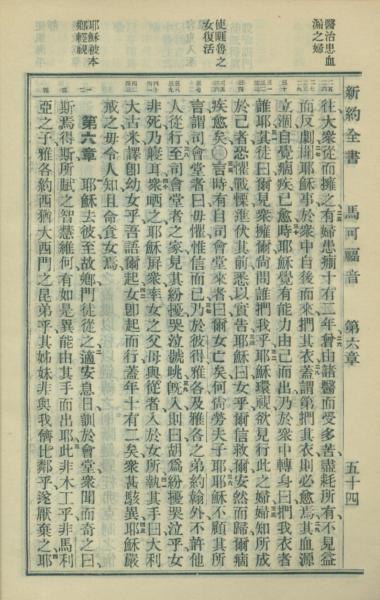 新約全書　馬可福音　第六章　五十四
醫治患血
漏之婦
使睚魯之
女復活
耶穌被本
鄉輕視
往大衆從而擁之有婦患漏十有二年曾由諸醫而受多苦盡耗所有不見益
而反劇聞耶穌事於衆中自後而來捫其衣蓋謂第捫其衣則必愈焉其血源
立涸自覺病疾已愈時耶穌覺有能力由己而出乃於衆中轉身曰捫我衣者
誰耶其徒曰爾見衆擁爾尙問誰捫我乎耶穌環視欲見行此之婦婦知所成
於己者恐懼戰慄進伏其前悉以實告耶穌曰女乎爾信救爾安然而歸爾病
疾愈矣○言時有自司會堂來者曰爾女亡矣何尙勞夫子耶耶穌不顧其所
言謂司會堂者曰毋懼惟信而已乃於彼得雅各及雅各之弟約翰外不許他
人從行至司會堂者之家見其紛擾哭泣號咷旣入則曰胡爲紛擾哭泣乎女
非死乃寢耳衆哂之耶穌屏衆率女之父母與從者入於女所執其手曰大利
大古米譯卽幼女乎吾語爾起女卽起而行蓋年十有二矣衆甚駭異耶穌嚴
戒之毋令人知且命食女焉
第六章　耶穌去彼至故鄉門徒從之適安息日訓於會堂衆聞而奇之曰
斯焉得斯所賦之智慧維何有如是異能由其手而出耶此非木工乎非馬利
亞之子雅各約西猶大西門之昆弟乎其姊妹非與我儕比鄰乎遂厭棄之耶